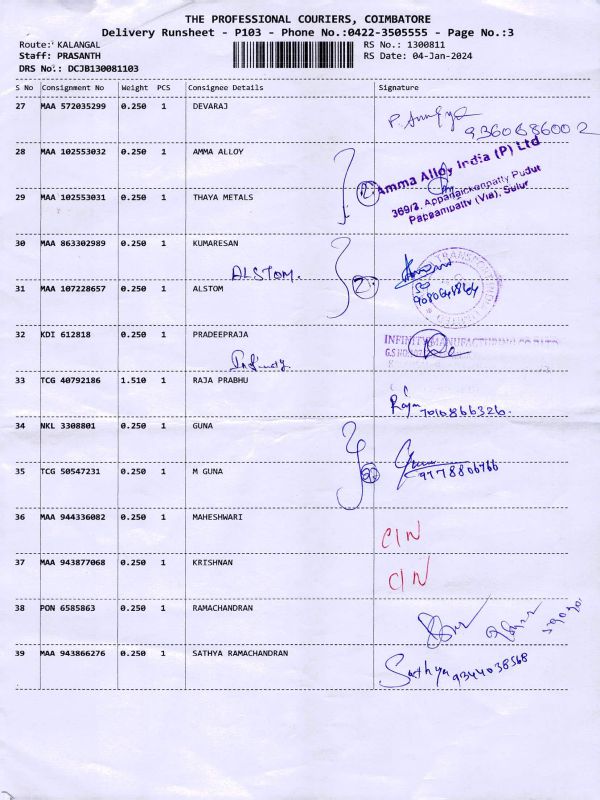 THE PROFESSIONAL COURIERS, COIMBATORE
Delivery Runsheet - P103 - Phone No.:0422-3505555 - Page No.:3
Route: KALANGAL RS No.: 1300811
Staff: PRASANTH RS Date: 04-Jan-2024
DRS No.: DCJB130081103
S No Consignment No Weight PCS Consignee Details Signature
27 MAA 572035299 0.250 1 DEVARAJ
9360686002
28 MAA 102553032 0.250 1 AMMA ALLOY
Amma Alloy India (P) Ltd
29 MAA 102553031 0.250 1 THAYA METALS
2
369/2, Appanaickenpatty Pudur
Pappampatty (Via), Sulur
30 MAA 863302989 0.250 1 KUMARESAN
ALSTOM.
31 MAA 107228657 0.250 1 ALSTOM
2
32 KDI 612818 0.250 1 PRADEEPRAJA
INFINITY MANUFACTURING
33 TCG 40792186 1.510 1 RAJA PRABHU
Raja 7010866326.
34 NKL 3308801 0.250 1 GUNA
35 TCG 50547231 0.250 1 M GUNA
9778806766
36 MAA 944336082 0.250 1 MAHESHWARI
C/N
37 MAA 943877068 0.250 1 KRISHNAN
C/N
38 PON 6585863 0.250 1 RAMACHANDRAN
39 MAA 943866276 0.250 1 SATHYA RAMACHANDRAN
Sathya 9344038568